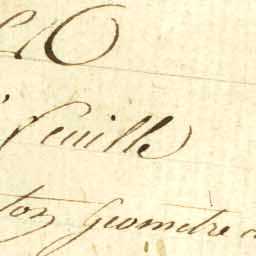 Feuille
ton Geometre